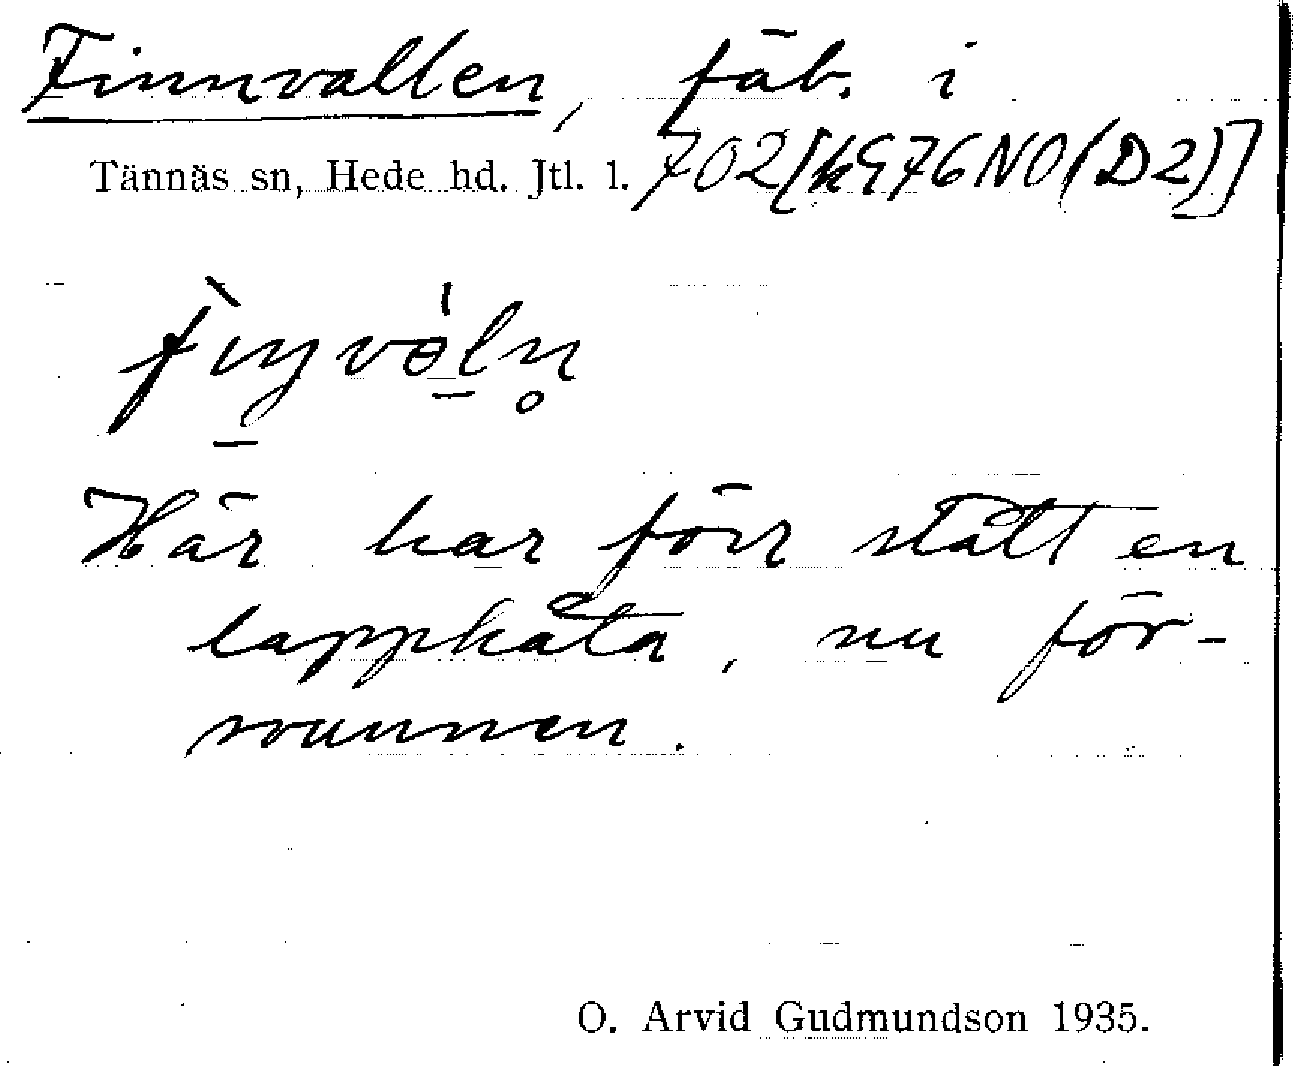 Finnvallen, fäb. i
Tännäs sn, Hede hd. Jtl. l. 702
Här har förr stått en
lappkåta, nu för-
svunnen.
O. Arvid Gudmundson 1935.